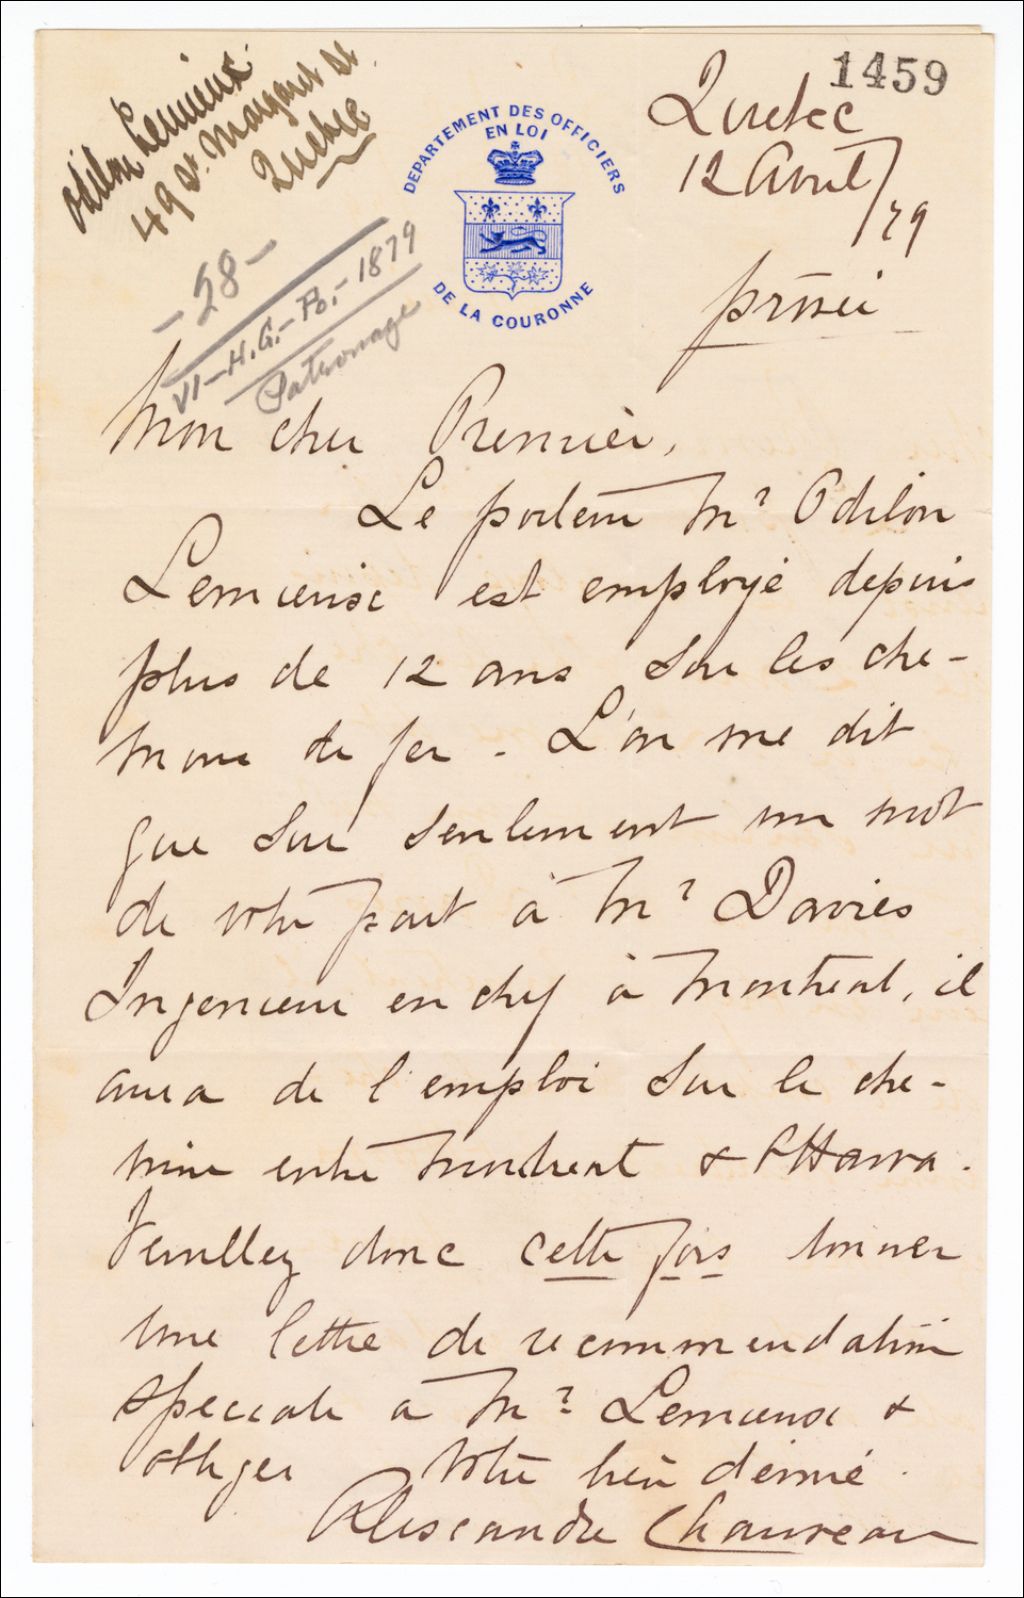 1459
Odilon Lemieux
49 St. Margaret St.
Quebec
- 58 -
VI-H.G.-Po.-1879
Patronage
DEPARTEMENT DES OFFICIERS
EN LOI
DE LA COURONNE
Quebec
12 Avril/79
privée
Mon cher Premier,
Le porteur Mr Odilon
Lemieux est employé depuis
plus de 12 ans sur les che-
mins de fer - L'on me dit
que sur seulement un mot
de votre part à Mr Davies
Ingenieur en chef à Montreal, il
aura de l'emploi sur le che-
min entre Montreal & Ottawa.
Veuillez donc cette fois donner
une lettre de recommendation
speciale à Mr Lemieux &
obliger votre bien dévoué.
Alexandre Chauveau